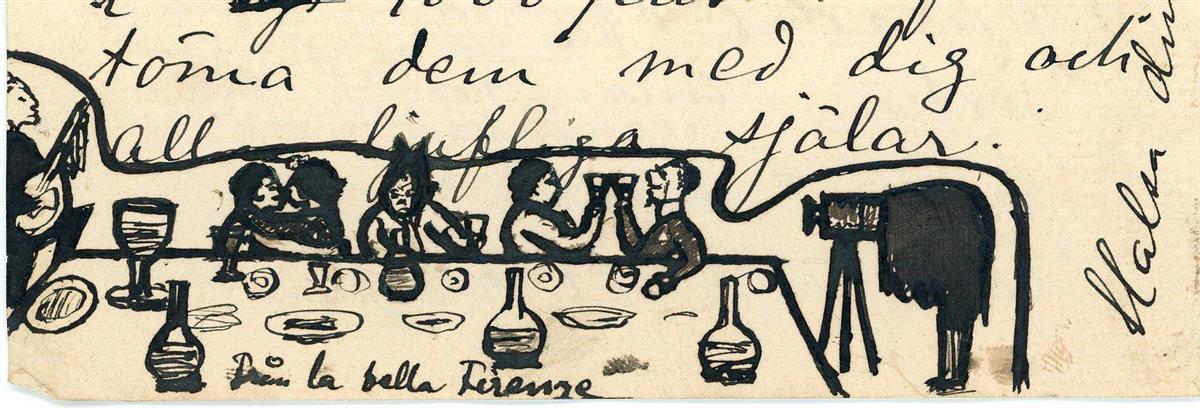 tömma dem med dig och
alla ljufliga själar.
Från la bella Firenze
Halsa din